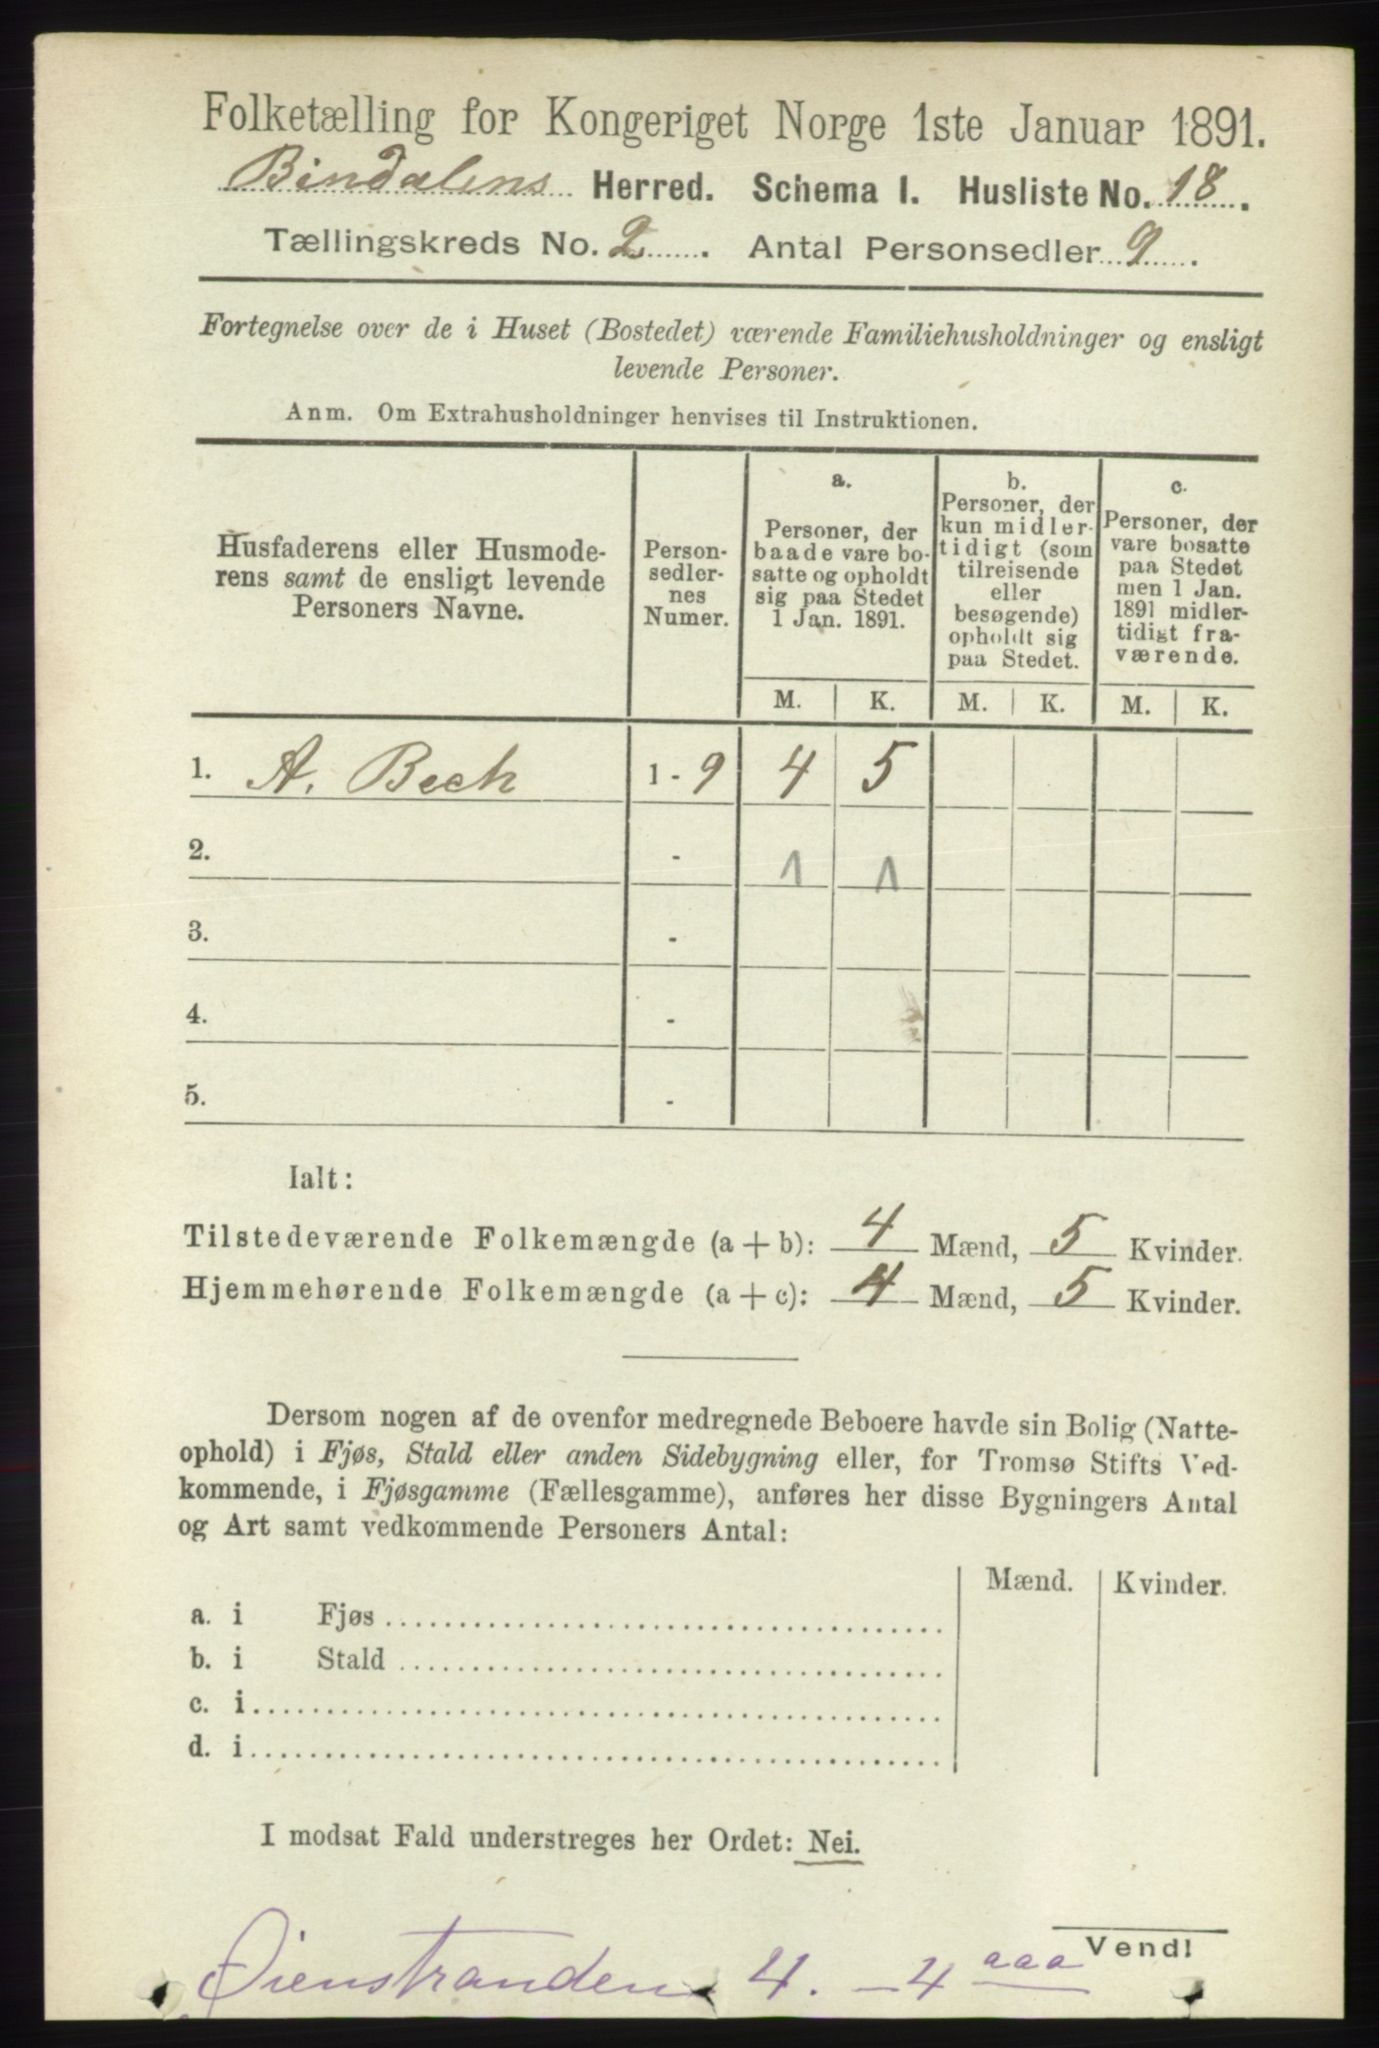 Folketælling for Kongeriget Norge 1ste Januar 1891.
Bindalens Herred. Schema I. Husliste No. 18.
Tællingskreds No. 2. Antal Personsedler 9.
Fortegnelse over de i Huset (Bostedet) værende Familiehusholdninger og ensligt
levende Personer.
Anm. Om Extrahusholdninger henvises til Instruktionen.
Husfaderens eller Husmode-
rens samt de ensligt levende
Personers Navne.
Person-
sedler-
nes
Numer.
a.
Personer, der
baade vare bo-
satte og opholdt
sig paa Stedet
1 Jan. 1891.
b.
Personer, der
kun midler-
tidigt (som
tilreisende
eller
besøgende)
opholdt sig
paa Stedet.
c.
Personer, der
vare bosatte
paa Stedet
men 1 Jan.
1891 midler-
tidigt fra-
værende.
M. K. M. K. M. K.
1. A. Bech 1 - 9 4 5
2. - 1 1
3. -
4. -
5. -
Ialt:
Tilstedeværende Folkemængde (a + b): 4 Mænd, 5 Kvinder.
Hjemmehørende Folkemængde (a + c): 4 Mænd, 5 Kvinder.
Dersom nogen af de ovenfor medregnede Beboere havde sin Bolig (Natte-
ophold) i Fjøs, Stald eller anden Sidebygning eller, for Tromsø Stifts Ved-
kommende, i Fjøsgamme (Fællesgamme), anføres her disse Bygningers Antal
og Art samt vedkommende Personers Antal:
Mænd. Kvinder.
a. i Fjøs
b. i Stald
c. i
d. i
I modsat Fald understreges her Ordet: Nei.
Vend!
Øienstranden 4. - 4 aaa